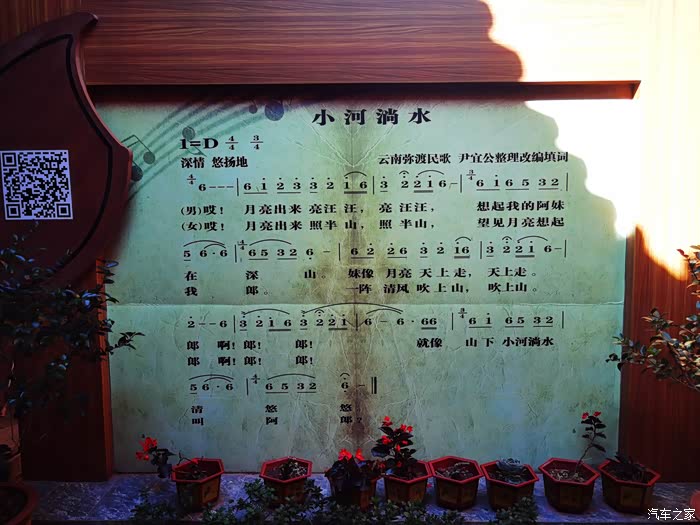 小河淌水
1=D 4/4 3/4
深情 悠扬地
云南弥渡民歌 尹宜公整理改编填词
4/4 6 - - - | 6 1 2 3 3 2 1 6 | 3 2 2 1 6 - | 3/4 6 1 6 5 3 2 |
(男)哎! 月亮出来 亮汪汪, 亮 汪汪, 想起我的阿妹
(女)哎! 月亮出来 照半山, 照 半山, 望见月亮想起
5 6 · 6 | 4/4 6 5 3 2 6 - | 6 2 2 6 3 2 1 6 | 3 2 2 1 6 - |
在 深 山。 妹像 月亮 天上走, 天上走。
我 郎。 一阵 清风 吹上山, 吹上山。
2 - - 6 | 3 2 1 6 3 2 1 6 | 6 - 6 · 6 6 | 3/4 6 1 6 5 3 2 |
郎 啊!郎! 郎! 就像 山下 小河淌水
郎 啊!郎! 郎!
5 6 · 6 | 4/4 6 5 3 2 6 - ‖
清 悠 悠
叫 阿 郎?
汽车之家